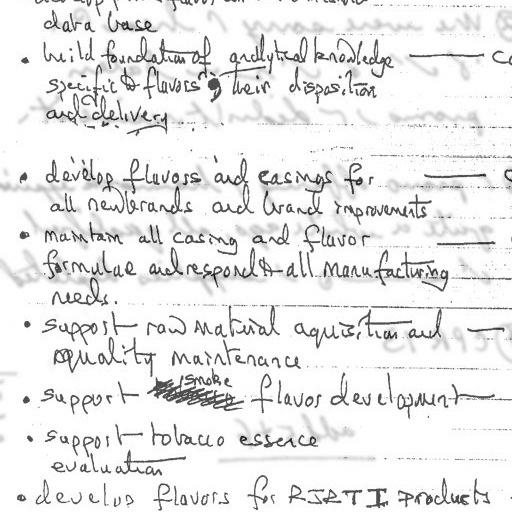 data base
• build foundation of analytical knowledge
specific to flavors, their disposition
and delivery
• develop flavors and casings for
all new brands and brand improvements
• maintain all casing and flavor
formulae and respond to all manufacturing
needs.
• support raw material aquisition and
quality maintenance
• support smoke flavor development
• support tobacco essence
evaluation
• develop flavors for RJRTI products